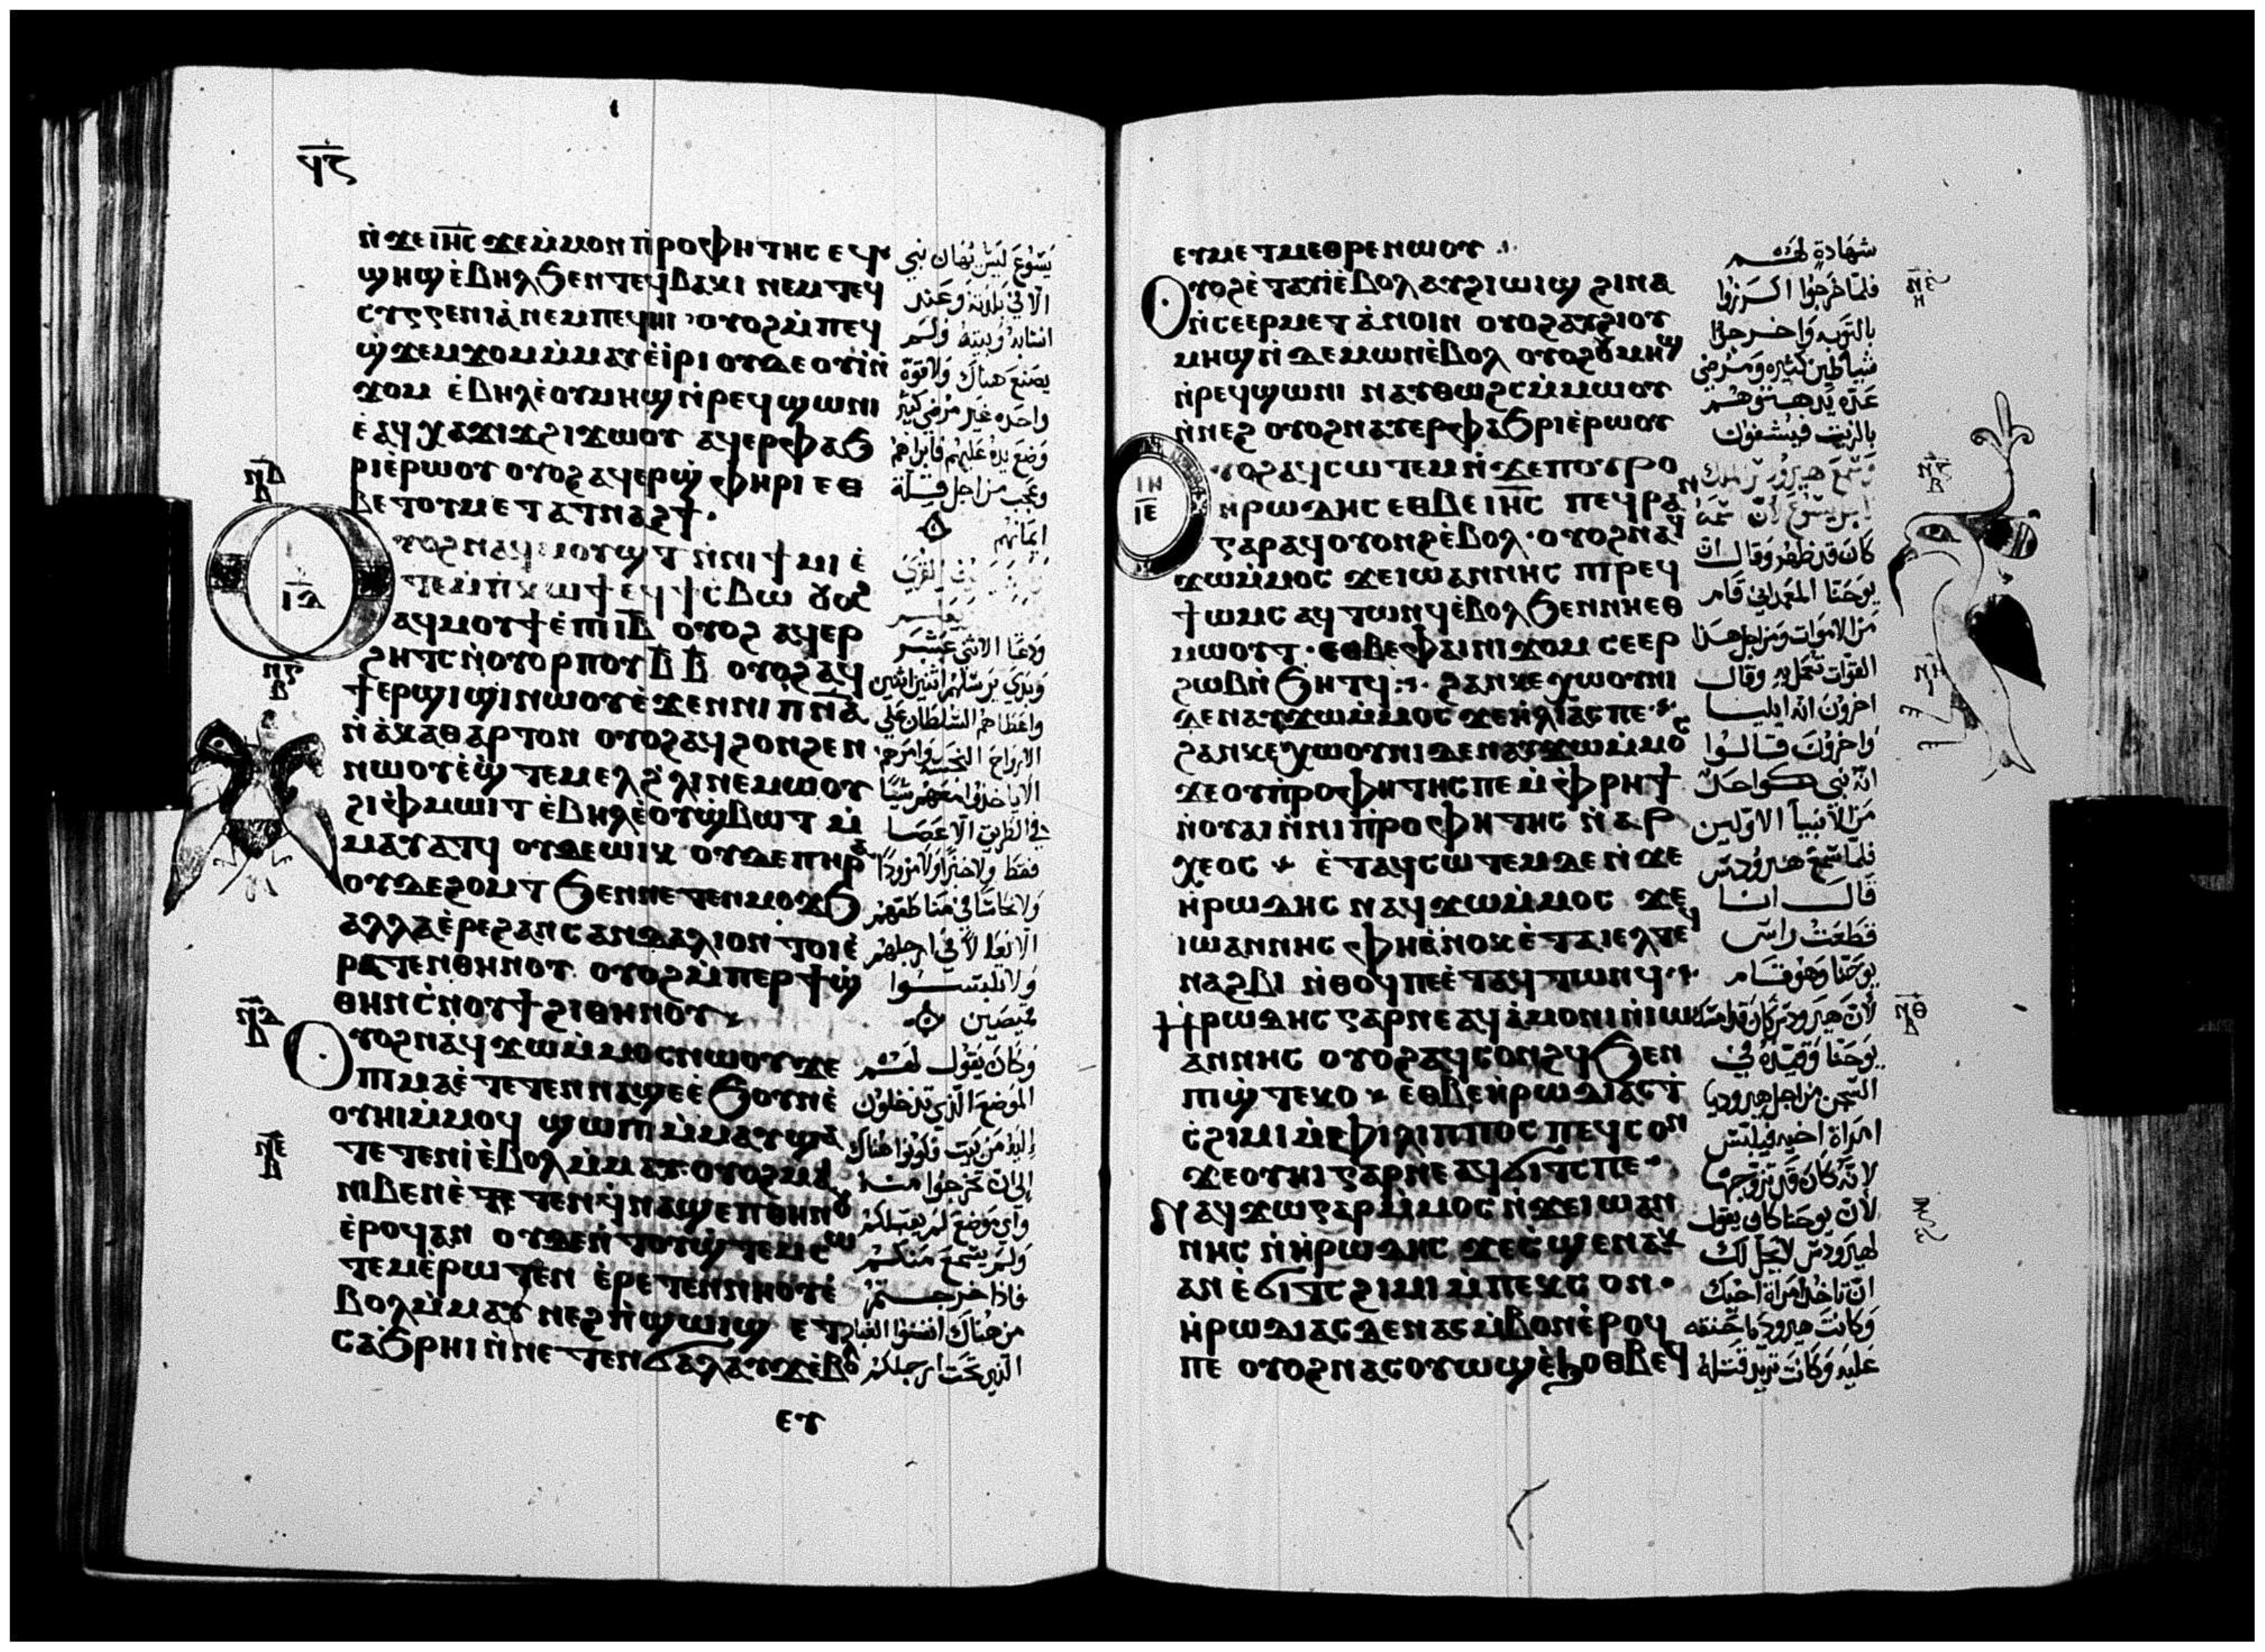 ϥ̅ⲋ̅
ⲛ̀ϫⲉⲓⲏ̅ⲥ̅ ϫⲉⲙ̀ⲙⲟⲛ ⲡ̀ⲣⲟⲫⲏⲧⲏⲥ ⲉϥ
ϣⲏϣ ⲉ̀ⲃⲏⲗ ϧⲉⲛ ⲧⲉϥⲃⲁⲕⲓ ⲛⲉⲙ ⲧⲉϥ
ⲥⲩⲅⲅⲉⲛⲓⲁ̀ ⲛⲉⲙ ⲡⲉϥⲏⲓ ⲟⲩⲟϩ ⲙ̀ⲡⲉϥ
ϣ̀ϫⲉⲙϫⲟⲙ ⲙ̀ⲙⲁⲩ ⲉ̀ⲓⲣⲓ ⲟⲩⲇⲉ ⲟⲩⲓ̀ ⲛ̀
ϫⲟⲙ ⲉ̀ⲃⲏⲗ ⲉ̀ⲟⲩⲙⲏϣ ⲛ̀ⲣⲉϥϣⲱⲛⲓ
ⲉ̀ⲁϥⲭⲁϫⲓϫ ϩⲓϫⲱⲟⲩ ⲁϥⲉⲣⲫⲁϧ
ⲣⲓ ⲉ̀ⲣⲱⲟⲩ ⲟⲩⲟϩ ⲁϥⲉⲣϣ̀ⲫⲏⲣⲓ ⲉⲑ
ⲃⲉ ⲧⲟⲩⲙⲉⲧⲁⲧⲛⲁϩϯ ·
ⲟⲩⲟϩ ⲛⲁϥⲙⲟⲩϣⲧ ⲛ̀ⲛⲓϯⲙⲓ ⲉ̀
ⲧⲉⲙ̀ⲡⲕⲱϯ ⲉϥϯⲥ̀ⲃⲱ ⲟⲩⲟϩ
ⲁϥⲙⲟⲩϯ ⲉ̀ⲡⲓⲓ̅ⲃ̅ ⲟⲩⲟϩ ⲁϥⲉⲣ
ϩⲏⲧⲥ ⲛ̀ⲟⲩⲟⲣⲡⲟⲩ ⲃ̅ ⲃ̅ ⲟⲩⲟϩ ⲁϥ
ϯⲉⲣϣⲓϣⲓ ⲛⲱⲟⲩ ⲉ̀ϫⲉⲛ ⲛⲓⲡ̅ⲛ̅ⲁ̅
ⲛ̀ⲁⲕⲁⲑⲁⲣⲧⲟⲛ ⲟⲩⲟϩ ⲁϥϩⲟⲛϩⲉⲛ
ⲛⲱⲟⲩ ⲉ̀ϣ̀ⲧⲉⲙⲉⲗ ϩ̀ⲗⲓ ⲛⲉⲙⲱⲟⲩ
ϩⲓ ⲫ̀ⲙⲱⲓⲧ ⲉ̀ⲃⲏⲗ ⲉ̀ⲟⲩϣ̀ⲃⲱⲧ ⲙ̀
ⲙⲁⲩⲁⲧϥ ⲟⲩⲇⲉ ⲱⲓⲕ ⲟⲩⲇⲉ ⲡⲏⲣⲁ
ⲟⲩⲇⲉ ϩⲟⲙⲧ ϧⲉⲛ ⲛⲉⲧⲉⲛⲙⲟϫϧ
ⲁⲗⲗⲁ ⲉ̀ⲣⲉ ϩⲁⲛⲥⲁⲛⲇⲁⲗⲓⲟⲛ ⲧⲟⲓ ⲉ̀
ⲣⲁⲧⲉⲛⲑⲏⲛⲟⲩ ⲟⲩⲟϩ ⲙ̀ⲡⲉⲣϯ ϣ̀
ⲑⲏⲛ ⲥ̀ⲛⲟⲩϯ ϩⲓ ⲑⲏⲛⲟⲩ
ⲟⲩⲟϩ ⲛⲁϥϫⲱⲙ̀ⲙⲟⲥ ⲛⲱⲟⲩ ϫⲉ
ⲡⲓⲙⲁ ⲉ̀ⲧⲉⲧⲉⲛⲛⲁϣⲉ ⲉ̀ϧⲟⲩⲛ ⲉ̀
ⲟⲩⲏⲓ ⲙ̀ⲙⲟϥ ϣⲱⲡⲓ ⲙ̀ⲙⲁⲩ ϣⲁ
ⲧⲉⲧⲉⲛⲓ̀ ⲉ̀ⲃⲟⲗ ⲙ̀ⲙⲁⲩ ⲟⲩⲟϩ ⲙⲁⲓ
ⲛⲓⲃⲉⲛ ⲉ̀ⲧⲉⲧⲉⲛϥⲛⲁϣⲉⲡⲑⲏⲛⲟⲩ
ⲉ̀ⲣⲟϥ ⲁⲛ ⲟⲩⲇⲉ ⲛ̀ⲧⲟⲩϣ̀ⲧⲉⲙⲥⲱ
ⲧⲉⲙ ⲉ̀ⲣⲱⲧⲉⲛ ⲉ̀ⲣⲉⲧⲉⲛⲛⲏⲟⲩ ⲉ̀
ⲃⲟⲗ ⲙ̀ⲙⲁⲩ ⲛⲉϩ ⲡ̀ϣⲱⲓϣ ⲉⲧ
ⲥⲁϧⲣⲏⲓ ⲛ̀ⲛⲉⲧⲉⲛϭⲁⲗⲁⲩϫ ⲉ̀ⲃⲟⲗ
ⲉⲩ
يسوع ليس يهان نبي
الا في بلدته وعند
انسابه وبيته ولم
يصنع هناك ولا قوة
واحده غير مرضي كثير
وضع يده عليهم فابراهم
وعجب من اجل قلة
ايمانهم
ودعا الاثني عشر
وبدي يرسلهم اثنين اثنين
واعطاهم السلطان علي
الارواح النجسه وامرهم
الا ياخذوا معهم شيا
في الطريق الا عصا
فقط ولا خبزا ولا مزودا
ولا نحاسا في مناطقهم
الا نعالا في ارجلهم
ولا يلبسوا
قميصين
وكان يقول لهم
الموضع الذي تدخلون
اليه من بيت فكونوا هناك
الي ان تخرجوا منه
واي موضع لم يقبلكم
ولم يسمع منكم
فاذا خرجتم
من هناك انفضوا الغبار
الذي تحت ارجلكم
ⲓ̅ⲇ̅
ⲛ̅ⲇ̅
ⲛ̅ⲉ̅
ⲉⲩⲙⲉⲧⲙⲉⲑⲣⲉ ⲛⲱⲟⲩ
ⲟⲩⲟϩ ⲉ̀ⲧⲁⲩⲓ̀ ⲉ̀ⲃⲟⲗ ⲁⲩϩⲓⲱⲓϣ ϩⲓⲛⲁ
ⲛ̀ⲥⲉⲉⲣⲙⲉⲧⲁⲛⲟⲓⲛ ⲟⲩⲟϩ ⲁⲩϩⲓⲟⲩ
ⲙⲏϣ ⲛ̀ⲇⲉⲙⲱⲛ ⲉ̀ⲃⲟⲗ ⲟⲩⲟϩ ⲟⲩⲙⲏϣ
ⲛ̀ⲣⲉϥϣⲱⲛⲓ ⲛⲁⲩⲑⲱϩⲥ ⲙ̀ⲙⲱⲟⲩ
ⲛ̀ⲛⲉϩ ⲟⲩⲟϩ ⲛⲁⲩⲉⲣⲫⲁϧⲣⲓ ⲉ̀ⲣⲱⲟⲩ
ⲟⲩⲟϩ ⲁϥⲥⲱⲧⲉⲙ ⲛ̀ϫⲉ ⲡⲟⲩⲣⲟ
ⲏⲣⲱⲇⲏⲥ ⲉⲑⲃⲉ ⲓⲏ̅ⲥ̅ ⲡⲉϥⲣⲁⲛ
ⲅⲁⲣ ⲁϥⲟⲩⲟⲛϩ ⲉ̀ⲃⲟⲗ · ⲟⲩⲟϩ ⲛⲁϥ
ϫⲱⲙ̀ⲙⲟⲥ ϫⲉ ⲓⲱⲁⲛⲛⲏⲥ ⲡⲓⲣⲉϥ
ϯⲱⲙⲥ ⲁϥⲧⲱⲛϥ ⲉ̀ⲃⲟⲗ ϧⲉⲛ ⲛⲏⲉⲑ
ⲙⲱⲟⲩⲧ · ⲉⲑⲃⲉ ⲫⲁⲓ ⲛⲓϫⲟⲙ ⲥⲉⲉⲣ
ϩⲱⲃ ⲛ̀ϧⲏⲧϥ ϩⲁⲛⲕⲉⲭⲱⲟⲩⲛⲓ
ⲇⲉ ⲛⲁⲩϫⲱⲙ̀ⲙⲟⲥ ϫⲉ ⲏ̀ⲗⲓⲁⲥ ⲡⲉ
ϩⲁⲛⲕⲉⲭⲱⲟⲩⲛⲓ ⲇⲉ ⲛⲁⲩϫⲱⲙ̀ⲙⲟⲥ
ϫⲉ ⲟⲩⲡ̀ⲣⲟⲫⲏⲧⲏⲥ ⲡⲉ ⲙ̀ⲫⲣⲏϯ
ⲛ̀ⲟⲩⲁⲓ ⲛ̀ⲛⲓⲡ̀ⲣⲟⲫⲏⲧⲏⲥ ⲛ̀ⲁⲣ
ⲭⲉⲟⲥ ⲉ̀ⲧⲁϥⲥⲱⲧⲉⲙ ⲇⲉ ⲛ̀ϫⲉ
ⲏ̀ⲣⲱⲇⲏⲥ ⲛⲁϥϫⲱⲙ̀ⲙⲟⲥ ϫⲉ
ⲓⲱⲁⲛⲛⲏⲥ ⲫⲏ ⲁ̀ⲛⲟⲕ ⲉ̀ⲧⲁⲓⲉⲗ ⲧⲉϥ
ⲛⲁϩⲃⲓ ⲛ̀ⲑⲟϥ ⲡⲉ ⲉ̀ⲧⲁϥⲧⲱⲛϥ
ⲏ̀ⲣⲱⲇⲏⲥ ⲅⲁⲣ ⲛⲉ ⲁϥⲁ̀ⲙⲟⲛⲓ ⲛ̀ⲓⲱ
ⲁⲛⲛⲏⲥ ⲟⲩⲟϩ ⲁϥⲥⲟⲛϩϥ ϧⲉⲛ
ⲡⲓϣ̀ⲧⲉⲕⲟ ⲉ̀ⲑⲃⲉ ⲏ̀ⲣⲱⲇⲓⲁⲥ ϯ
ⲥ̀ϩⲓⲙⲓ ⲙ̀ⲫⲓⲗⲓⲡⲡⲟⲥ ⲡⲉϥⲥⲟⲛ
ϫⲉ ⲟⲩⲏⲓ ⲅⲁⲣ ⲛⲉ ⲁϥϭⲓⲧⲥ ⲡⲉ
ⲛⲁϥϫⲱ ⲅⲁⲣ ⲙ̀ⲙⲟⲥ ⲛ̀ϫⲉ ⲓⲱⲁⲛ
ⲛⲏⲥ ⲛ̀ⲏ̀ⲣⲱⲇⲏⲥ ϫⲉ ⲥ̀ϣⲉ ⲛⲁⲕ
ⲁⲛ ⲉ̀ϭⲓ ⲧⲥϩⲓⲙⲓ ⲙ̀ⲡⲉⲕⲥⲟⲛ ·
ⲏ̀ⲣⲱⲇⲓⲁⲥ ⲇⲉ ⲛⲁⲥⲙ̀ⲃⲟⲛ ⲉ̀ⲣⲟϥ
ⲡⲉ ⲟⲩⲟϩ ⲛⲁⲥⲟⲩⲱϣ ⲉ̀ϧⲟⲑⲃⲉϥ
شهادة لهم
فلما خرجوا اكرزوا
بالتوبه واخرجوا
شياطين كثيره ومرضي
عده يدهنوهم
بالزيت فيشفون
وسمع هيرودس الملك
كان قد ظهر وقال ان
يوحنا المعمداني قام
من الاموات ومن اجل هذا
القوات تعمل به وقال
اخرون انه ايليا
واخرون قالوا
انه نبي كواحد
من الانبيا الاولين
فلما سمع هيرودس
قال انا
قطعت راس
يوحنا وهو قام
لان هيرودس كان قد امسك
يوحنا وقيده في
السجن من اجل هيروديا
امراة اخيه فيلبس
لانه كان قد تزوجها
لان يوحنا كان يقول
لهيرودس لا يحل لك
ان تاخذ امراة اخيك
وكانت هيروديا حنقه
عليه وكانت تريد قتله
ⲓⲏ
ⲓⲉ
ⲛ̅ⲑ̅